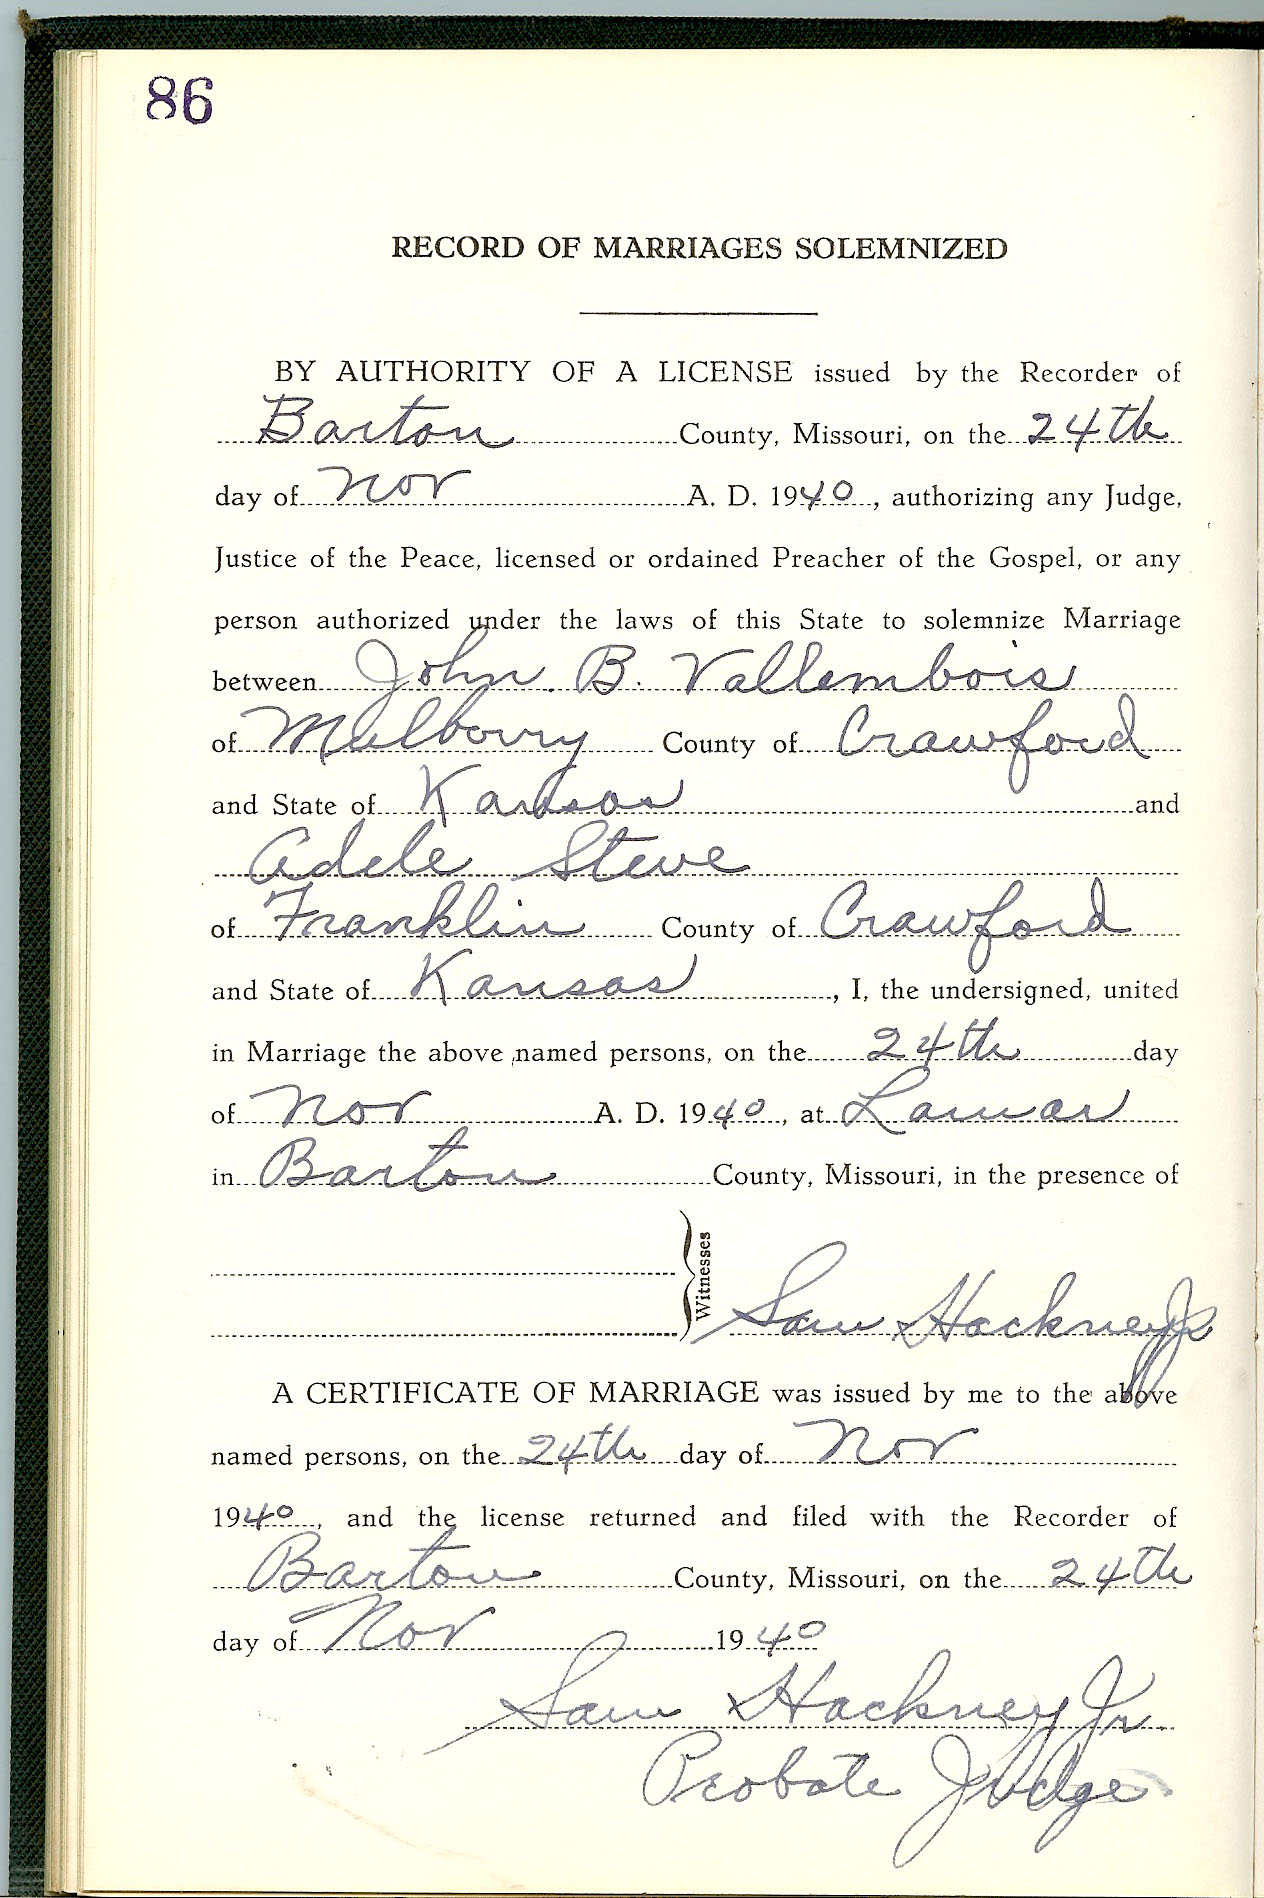 86
RECORD OF MARRIAGES SOLEMNIZED
BY AUTHORITY OF A LICENSE issued by the Recorder of
Barton County, Missouri, on the 24th
day of Nov A. D. 1940, authorizing any Judge,
Justice of the Peace, licensed or ordained Preacher of the Gospel, or any
person authorized under the laws of this State to solemnize Marriage
between John B. Vallembois
of Mulberry County of Crawford
and State of Kansas and
Adele Steve
of Franklin County of Crawford
and State of Kansas, I, the undersigned, united
in Marriage the above named persons, on the 24th day
of Nov A. D. 1940, at Lamar
in Barton County, Missouri, in the presence of
Witnesses
Sam Hackney Jr
A CERTIFICATE OF MARRIAGE was issued by me to the above
named persons, on the 24th day of Nov
1940, and the license returned and filed with the Recorder of
Barton County, Missouri, on the 24th
day of Nov 1940
Sam Hackney Jr.
Probate Judge